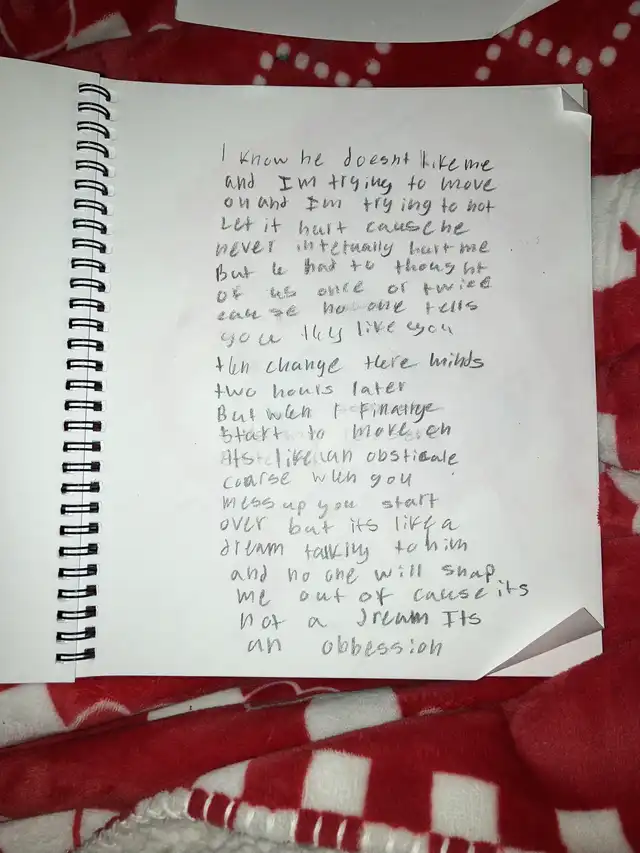 I know he doesnt like me
and I'm trying to move
on and I'm trying to not
Let it hurt cause he
never intetually hurt me
But he had to thought
of us once or twice
cause no one tells
you they like you
then change there minds
two hours later
But when I finallye
start to move on
its like an obsticale
coarse when you
mess up you start
over but its like a
dream talking to him
and no one will snap
me out of cause its
not a dream Its
an obbession